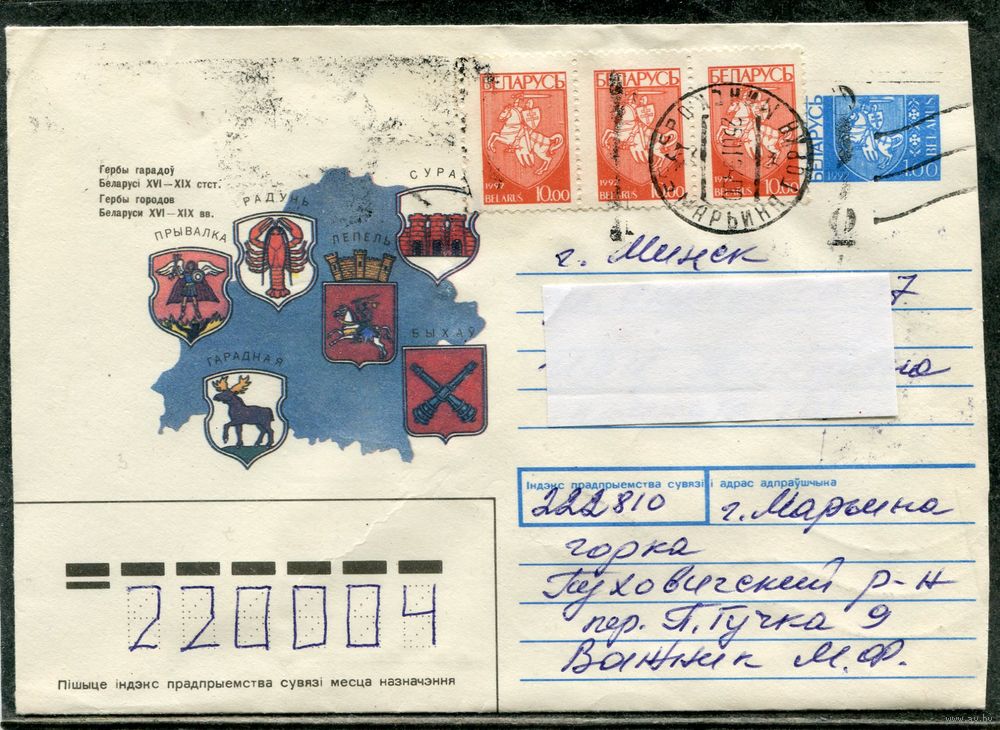 Гербы гарадоў
Беларусі XVI—XIX стст.
Гербы городов
Беларуси XVI—XIX вв.
ПРЫВАЛКА
РАДУНЬ
ЛЕПЕЛЬ
СУРАЖ
БЫХАЎ
ГАРАДНАЯ
БЕЛАРУСЬ
1992 10.00
BELARUS
БЕЛАРУСЬ
1992 10.00
BELARUS
БЕЛАРУСЬ
1992 10.00
BELARUS
БЕЛАРУСЬ
1992 1.00
BELARUS
г. Минск
7
на
Індэкс прадпрыемства сувязі і адрас адпраўшчыка
222810 г. Марьина
горка
Пуховичский р-н
пер. П. Гучка 9
Важник М.Ф.
220004
Пішыце індэкс прадпрыемства сувязі месца назначэння
www.ay.by